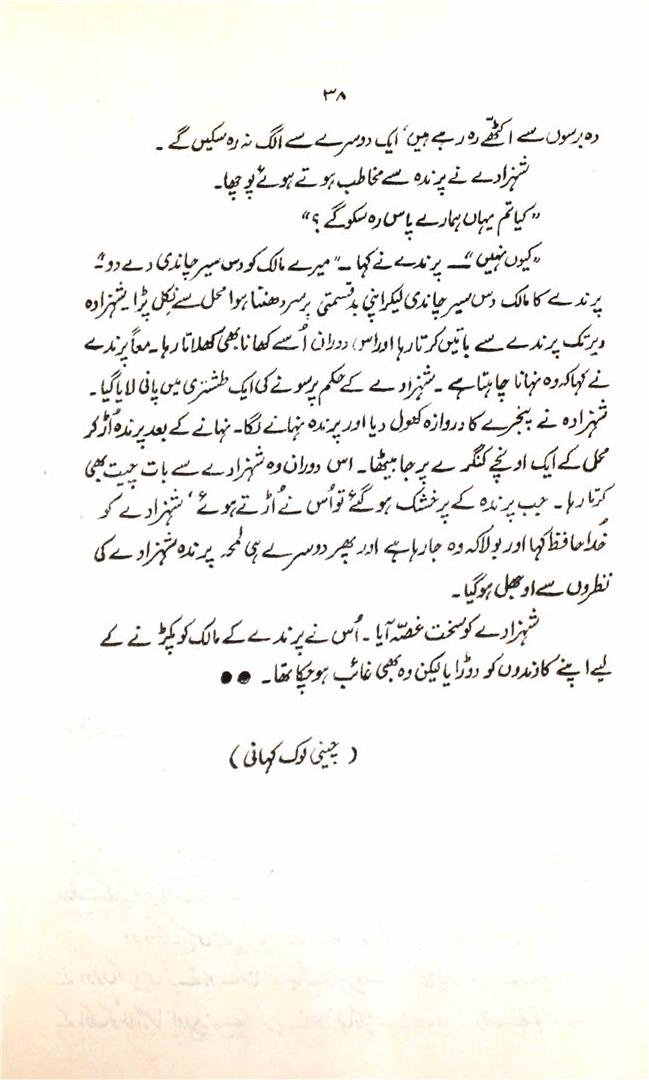 ۳۸
وہ برسوں سے اکٹھّے رہ رہے ہیں، ایک دوسرے سے الگ نہ رہ سکیں گے۔
شہزادے نے پرندہ سے مخاطب ہوتے ہوئے پوچھا۔
”کیا تم یہاں ہمارے پاس رہ سکو گے؟“
”کیوں نہیں“ ــ پرندے نے کہا ــ ”میرے مالک کو دس سیر چاندی دے دو“
پرندے کا مالک دس سیر چاندی لیکر اپنی بدقسمتی پر سر دھنتا ہوا محل سے نکل پڑا۔ شہزادہ
دیر تک پرندے سے باتیں کرتا رہا اور اس دوران اُسے کھانا بھی کھلاتا رہا۔ معاً پرندے
نے کہا کہ وہ نہانا چاہتا ہے۔ شہزادے کے حکم پر سونے کی ایک طشتری میں پانی لایا گیا۔
شہزادہ نے پنجرے کا دروازہ کھول دیا اور پرندہ نہانے لگا۔ نہانے کے بعد پرندہ اُڑ کر
محل کے ایک اونچے کنگرے پر جا بیٹھا۔ اس دوران وہ شہزادے سے بات چیت بھی
کرتا رہا۔ جب پرندہ کے پر خشک ہو گئے تو اُس نے اُڑتے ہوئے، شہزادے کو
خُدا حافظ کہا اور بولا کہ وہ جا رہا ہے اور پھر دوسرے ہی لمحہ پرندہ شہزادے کی
نظروں سے اوجھل ہو گیا۔
شہزادے کو سخت غصّہ آیا۔ اُس نے پرندے کے مالک کو پکڑنے کے
لیے اپنے کارندوں کو دوڑایا لیکن وہ بھی غائب ہو چکا تھا۔ ●●
(چینی لوک کہانی)